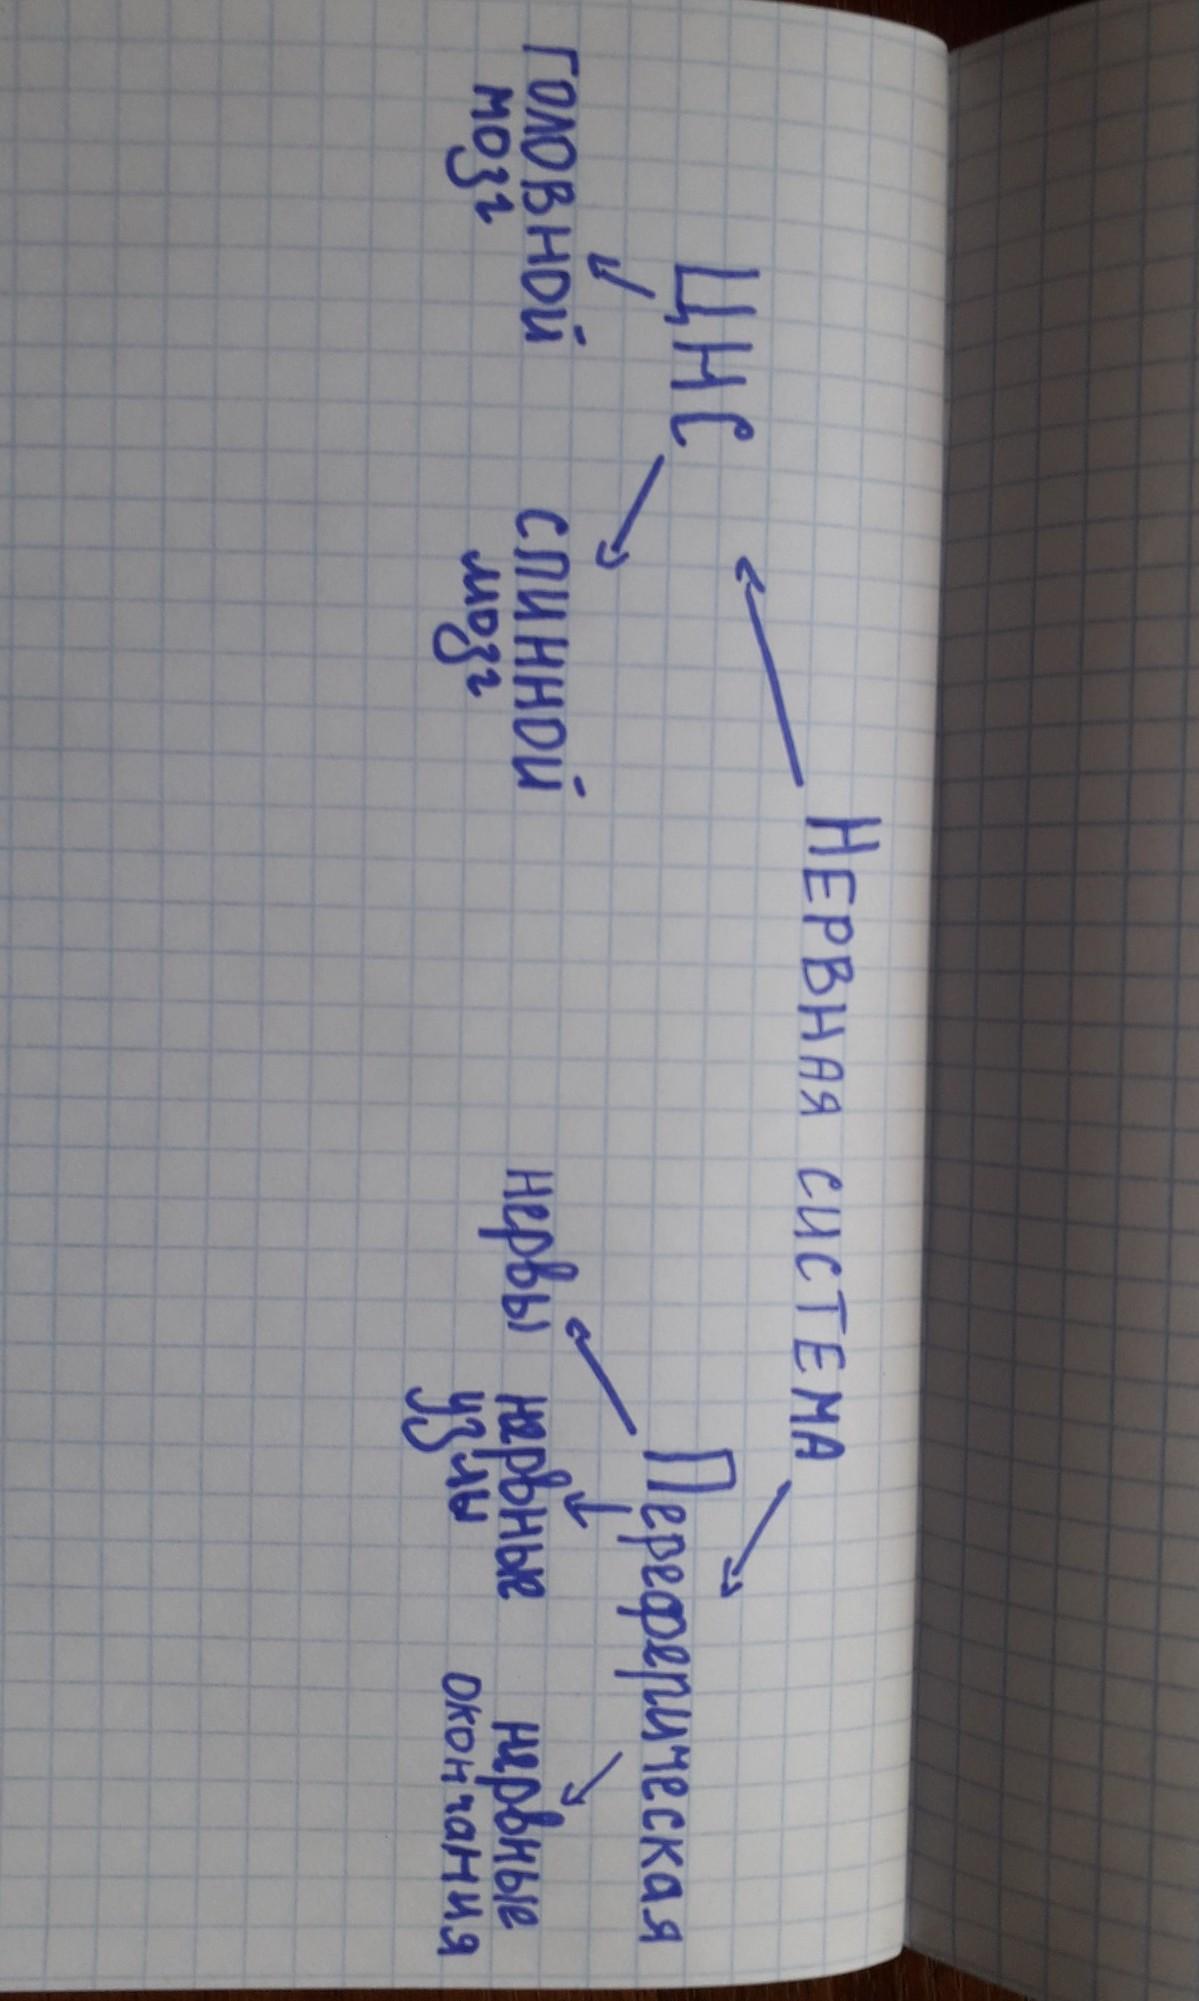 НЕРВНАЯ СИСТЕМА
ЦНС
Перефепическая
ГОЛОВНОЙ
мозг
СПИННОЙ
мозг
нервы
нервные
узлы
нервные
окончания